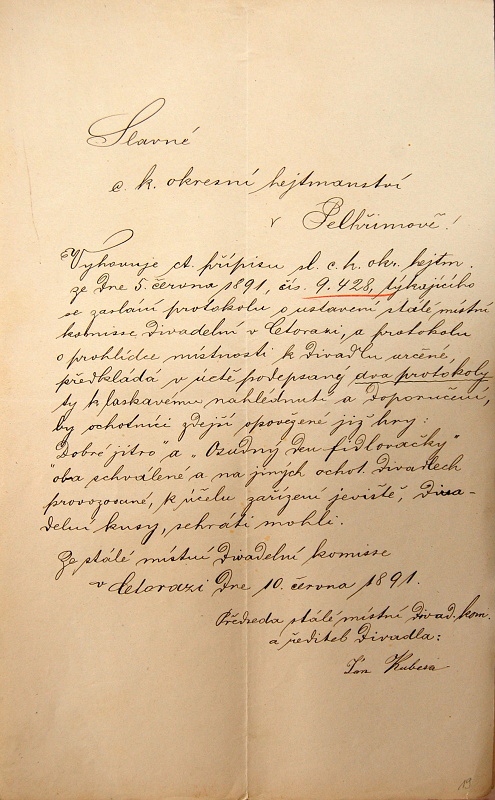 Slavné
c. k. okresní hejtmanství
v Pelhřimově!
Vyhovuje ct. přípisu sl. c. k. okr. hejtm.
ze dne 5. června 1891, čís. 9.428, týkajícího
se zaslání protokolu o ustavení stálé místní
komisse divadelní v Cetorazi, a protokolu
o prohlídce místnosti k divadlu určené,
předkládá v úctě podepsaný dva protokoly
ty k laskavému nahlednutí a doporučení,
by ochotníci zdejší opověžené již hry:
"Dobré jitro" a "Osudný den fidlovačky"
oba schválené a na jiných ochot. divadlech
provozované, k účelu zařízení jeviště, diva-
delní kusy, sehráti mohli.
Ze stálé místní divadelní komisse
v Cetorazi dne 10. června 1891.
Předseda stálé místní divad. kom.
a ředitel divadla:
Jan Kubesa
19